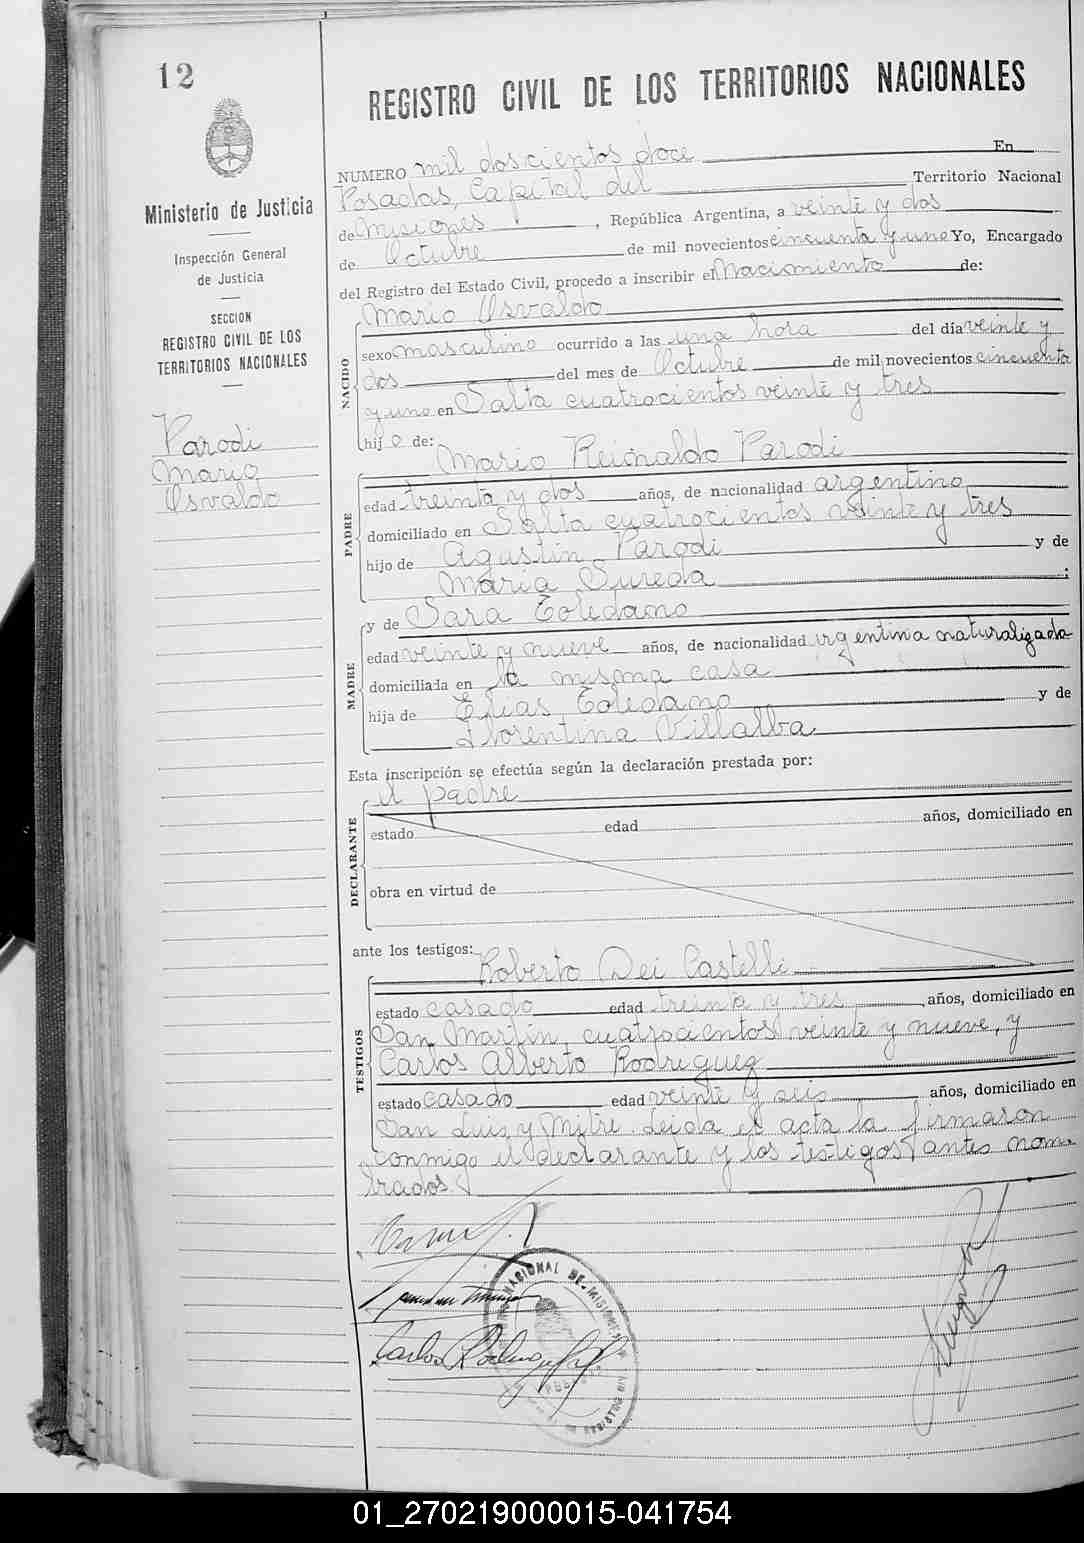 12
REGISTRO CIVIL DE LOS TERRITORIOS NACIONALES
Ministerio de Justicia
Inspección General
de Justicia
SECCION
REGISTRO CIVIL DE LOS
TERRITORIOS NACIONALES
Parodi
Mario
Osvaldo
NUMERO mil doscientos doce En
Posadas, Capital del Territorio Nacional
de Misiones, República Argentina, a veinte y dos
de Octubre de mil novecientos cincuenta y uno Yo, Encargado
del Registro del Estado Civil, procedo a inscribir el Nacimiento de:
NACIDO
Mario Osvaldo
sexo masculino ocurrido a las una hora del día veinte y
dos del mes de Octubre de mil novecientos cincuenta
y uno en Salta cuatrocientos veinte y tres
hijo de: Mario Reinaldo Parodi
PADRE
edad treinta y dos años, de nacionalidad argentino
domiciliado en Salta cuatrocientos veinte y tres
hijo de Agustin Parodi y de
Maria Sureda ;
MADRE
y de Sara Toledano
edad veinte y nueve años, de nacionalidad argentina naturalizada
domiciliada en la misma casa
hija de Elias Toledano y de
Florentina Villalba
Esta inscripción se efectúa según la declaración prestada por:
DECLARANTE
el padre
estado edad años, domiciliado en
obra en virtud de
ante los testigos: Roberto Dei Castelli
TESTIGOS
estado casado edad treinta y tres años, domiciliado en
San Martin, cuatrocientos veinte y nueve, y
Carlos Alberto Rodriguez
estado casado edad veinte y seis años, domiciliado en
San Luis y Mitre. Leida el acta la firmaron
conmigo el declarante y los testigos antes nom-
brados.
Carlos Rodriguez
NACIONAL DE MISIONES
01_270219000015-041754